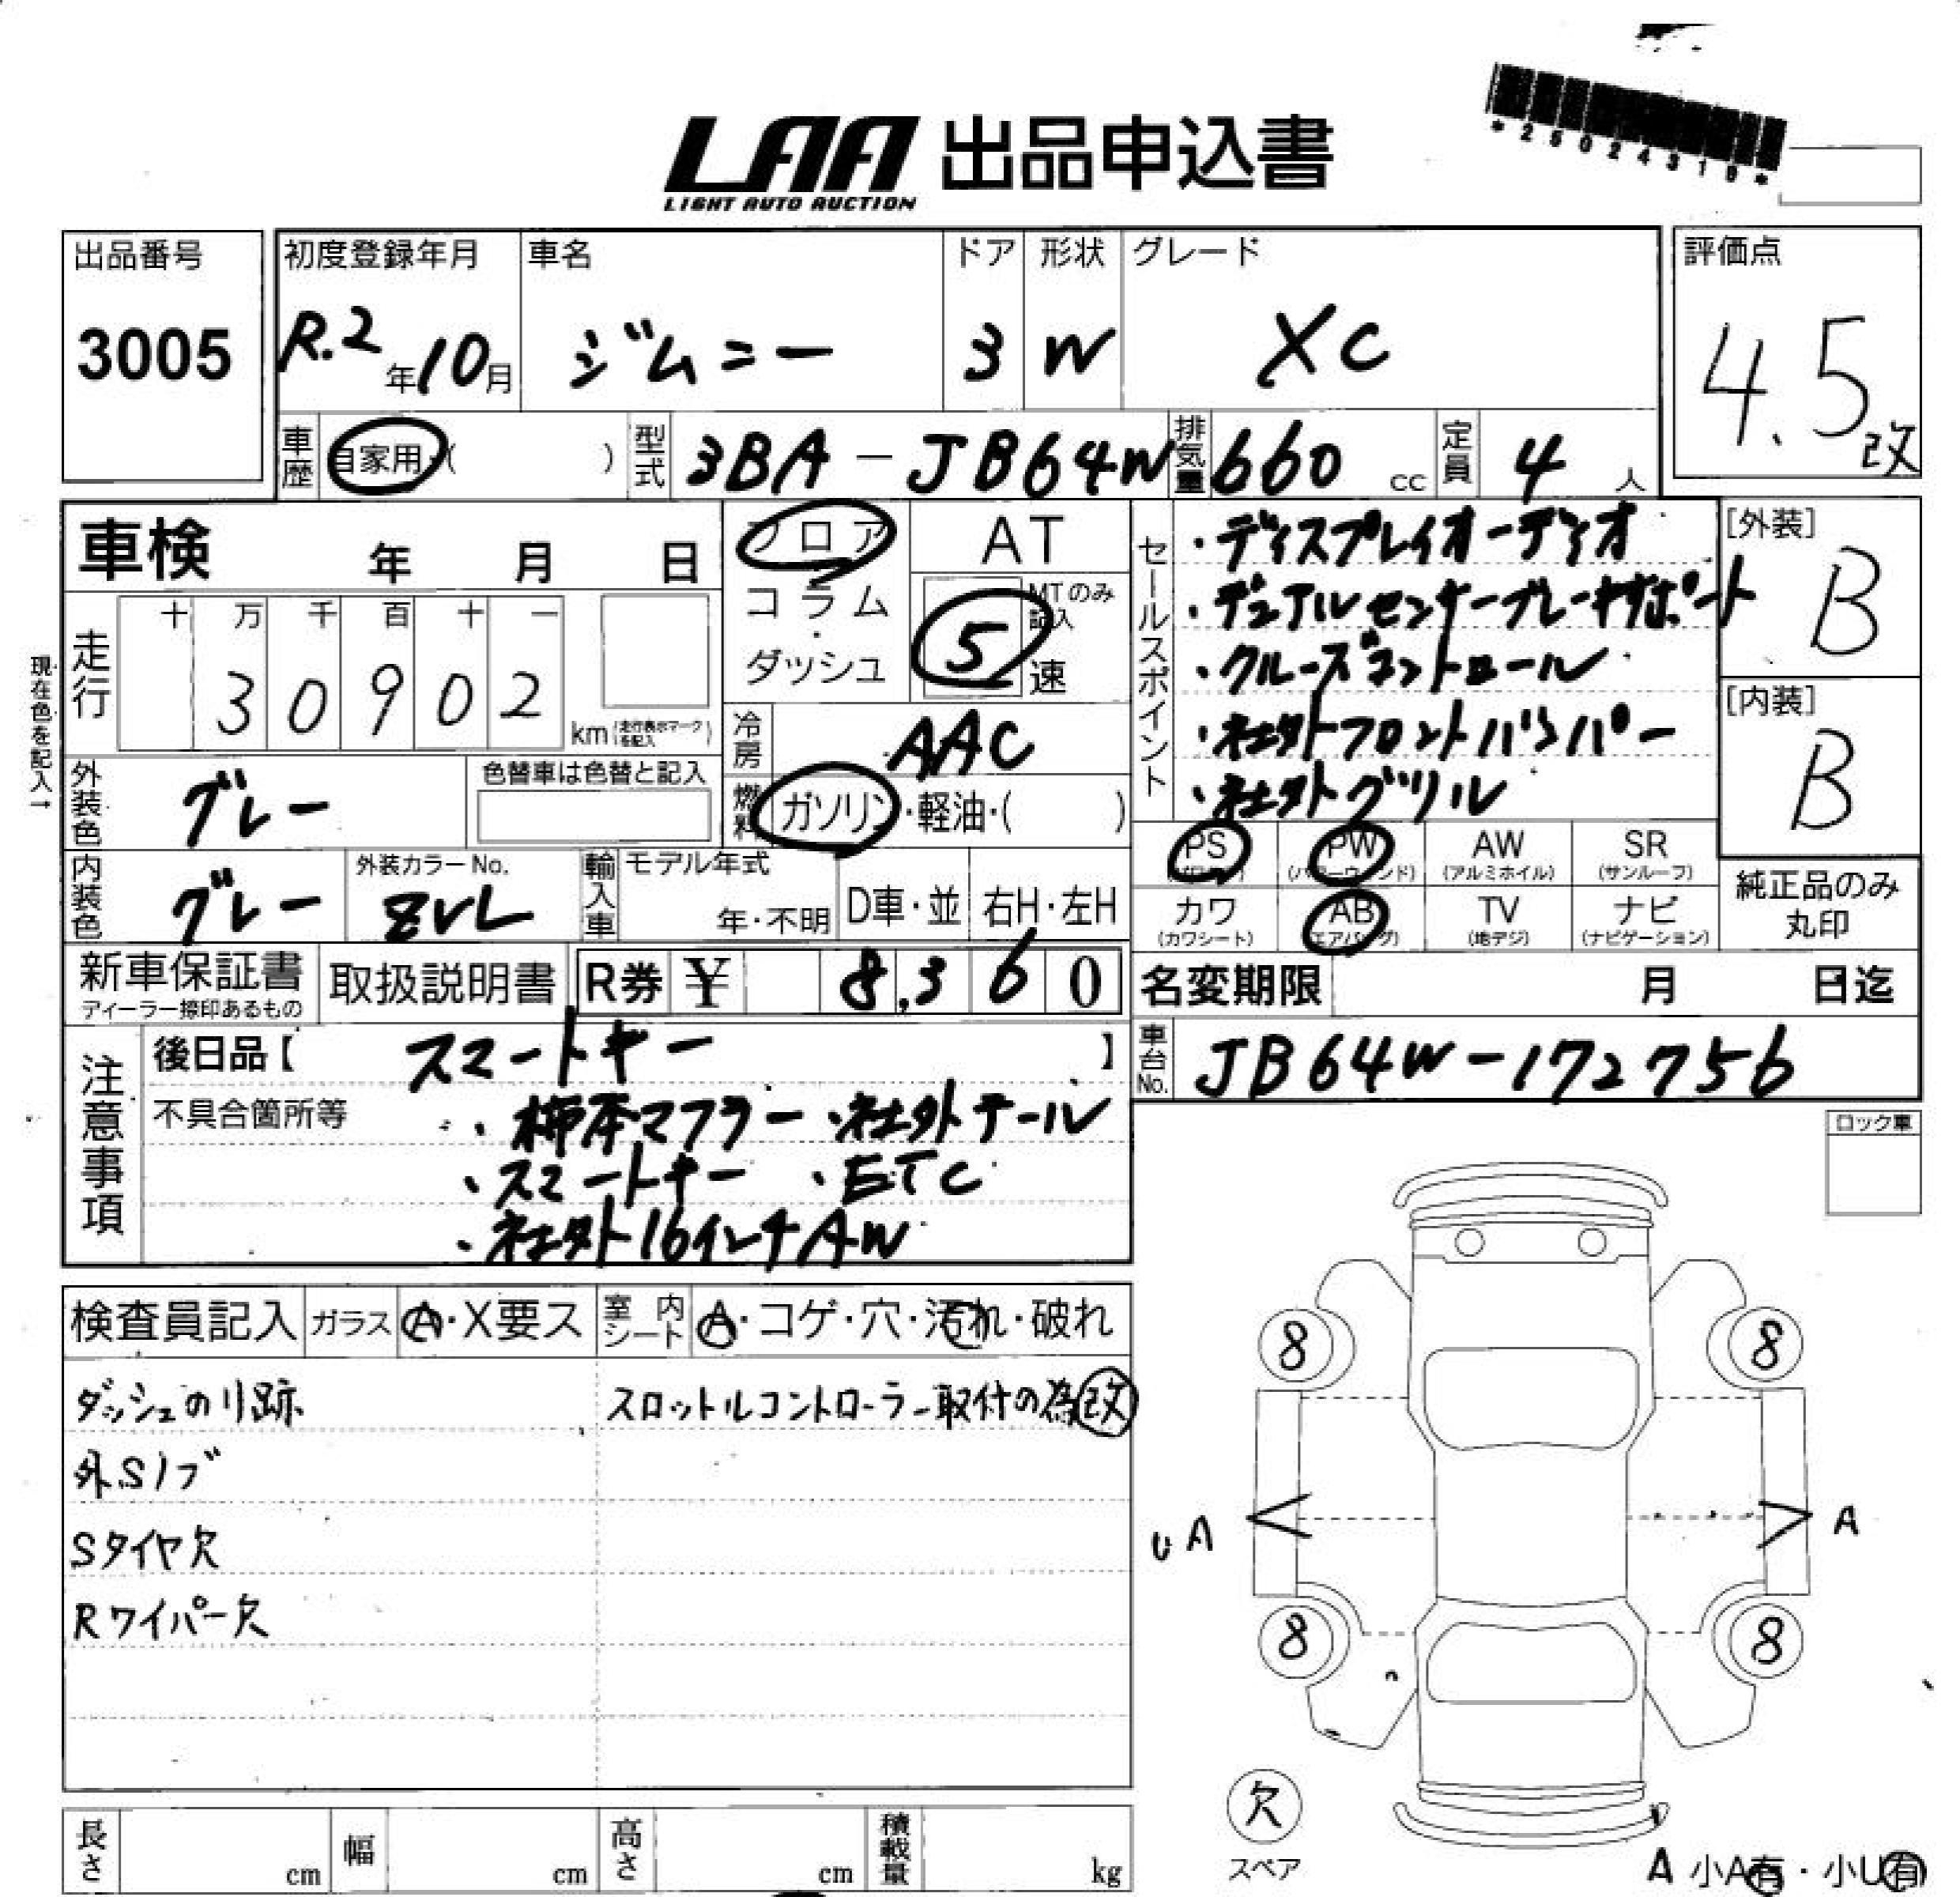 *25024310*
LAA 出品申込書
LIGHT AUTO AUCTION
出品番号
3005
初度登録年月
R.2年10月
車名
ジムニー
ドア
3
形状
W
グレード
XC
評価点
4.5
改
車歴 自家用・( )
型式 3BA-JB64W
排気量 660 cc
定員 4 人
車検 年 月 日
フロア
コラム
・
ダッシュ
AT
MTのみ記入
5 速
セールスポイント
・ディスプレイオーディオ
・デュアルセンサーブレーキサポート
・クルーズコントロール
・社外フロントバンパー
・社外グリル
[外装]
B
[内装]
B
現在色を記入→
走行
十 万 千 百 十 一
3 0 9 0 2
km (走行表示マークを記入)
冷房 AAC
燃料 ガソリン・軽油・( )
外装色 グレー
色替車は色替と記入
内装色 グレー
外装カラーNo.
ZVL
輸入車
モデル年式
年・不明
D車・並
右H・左H
PS
PW
(パワーウィンド)
AW
(アルミホイル)
SR
(サンルーフ)
カワ
(カワシート)
AB
(エアバッグ)
TV
(地デジ)
ナビ
(ナビゲーション)
純正品のみ
丸印
新車保証書
ディーラー捺印あるもの
取扱説明書
R券 ¥ 8,360
名変期限 月 日迄
車台No. JB64W-172756
注意事項
後日品【 スマートキー 】
不具合箇所等
・柿本マフラー ・社外テール
・スマートキー ・ETC
・社外16インチAW
ロック車
検査員記入
ガラス A・X要ス
室内シート A・コゲ・穴・汚れ・破れ
ダッシュのリ跡
スロットルコントローラー取付の為改
外Sノブ
Sタイヤ欠
Rワイパー欠
8
8
UA
A
8
8
欠
スペア
A 小A有・小U有
長さ cm
幅 cm
高さ cm
積載量 kg